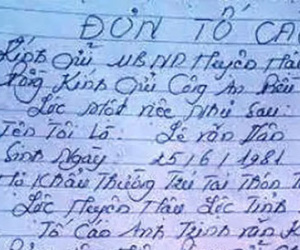 ĐƠN TỐ CÁO
Kính Gửi UBND Huyện Hậu
Đồng Kính Gửi Công An
Lộc Một Việc Như Sau:
Tên Tôi Là: Lê Văn Vân
Sinh Ngày 25/6/1981
Hộ Khẩu Thường Trú Tại Thôn
Lộc Huyện Hậu Lộc Tỉnh
Tố Cáo Anh Trịnh Văn